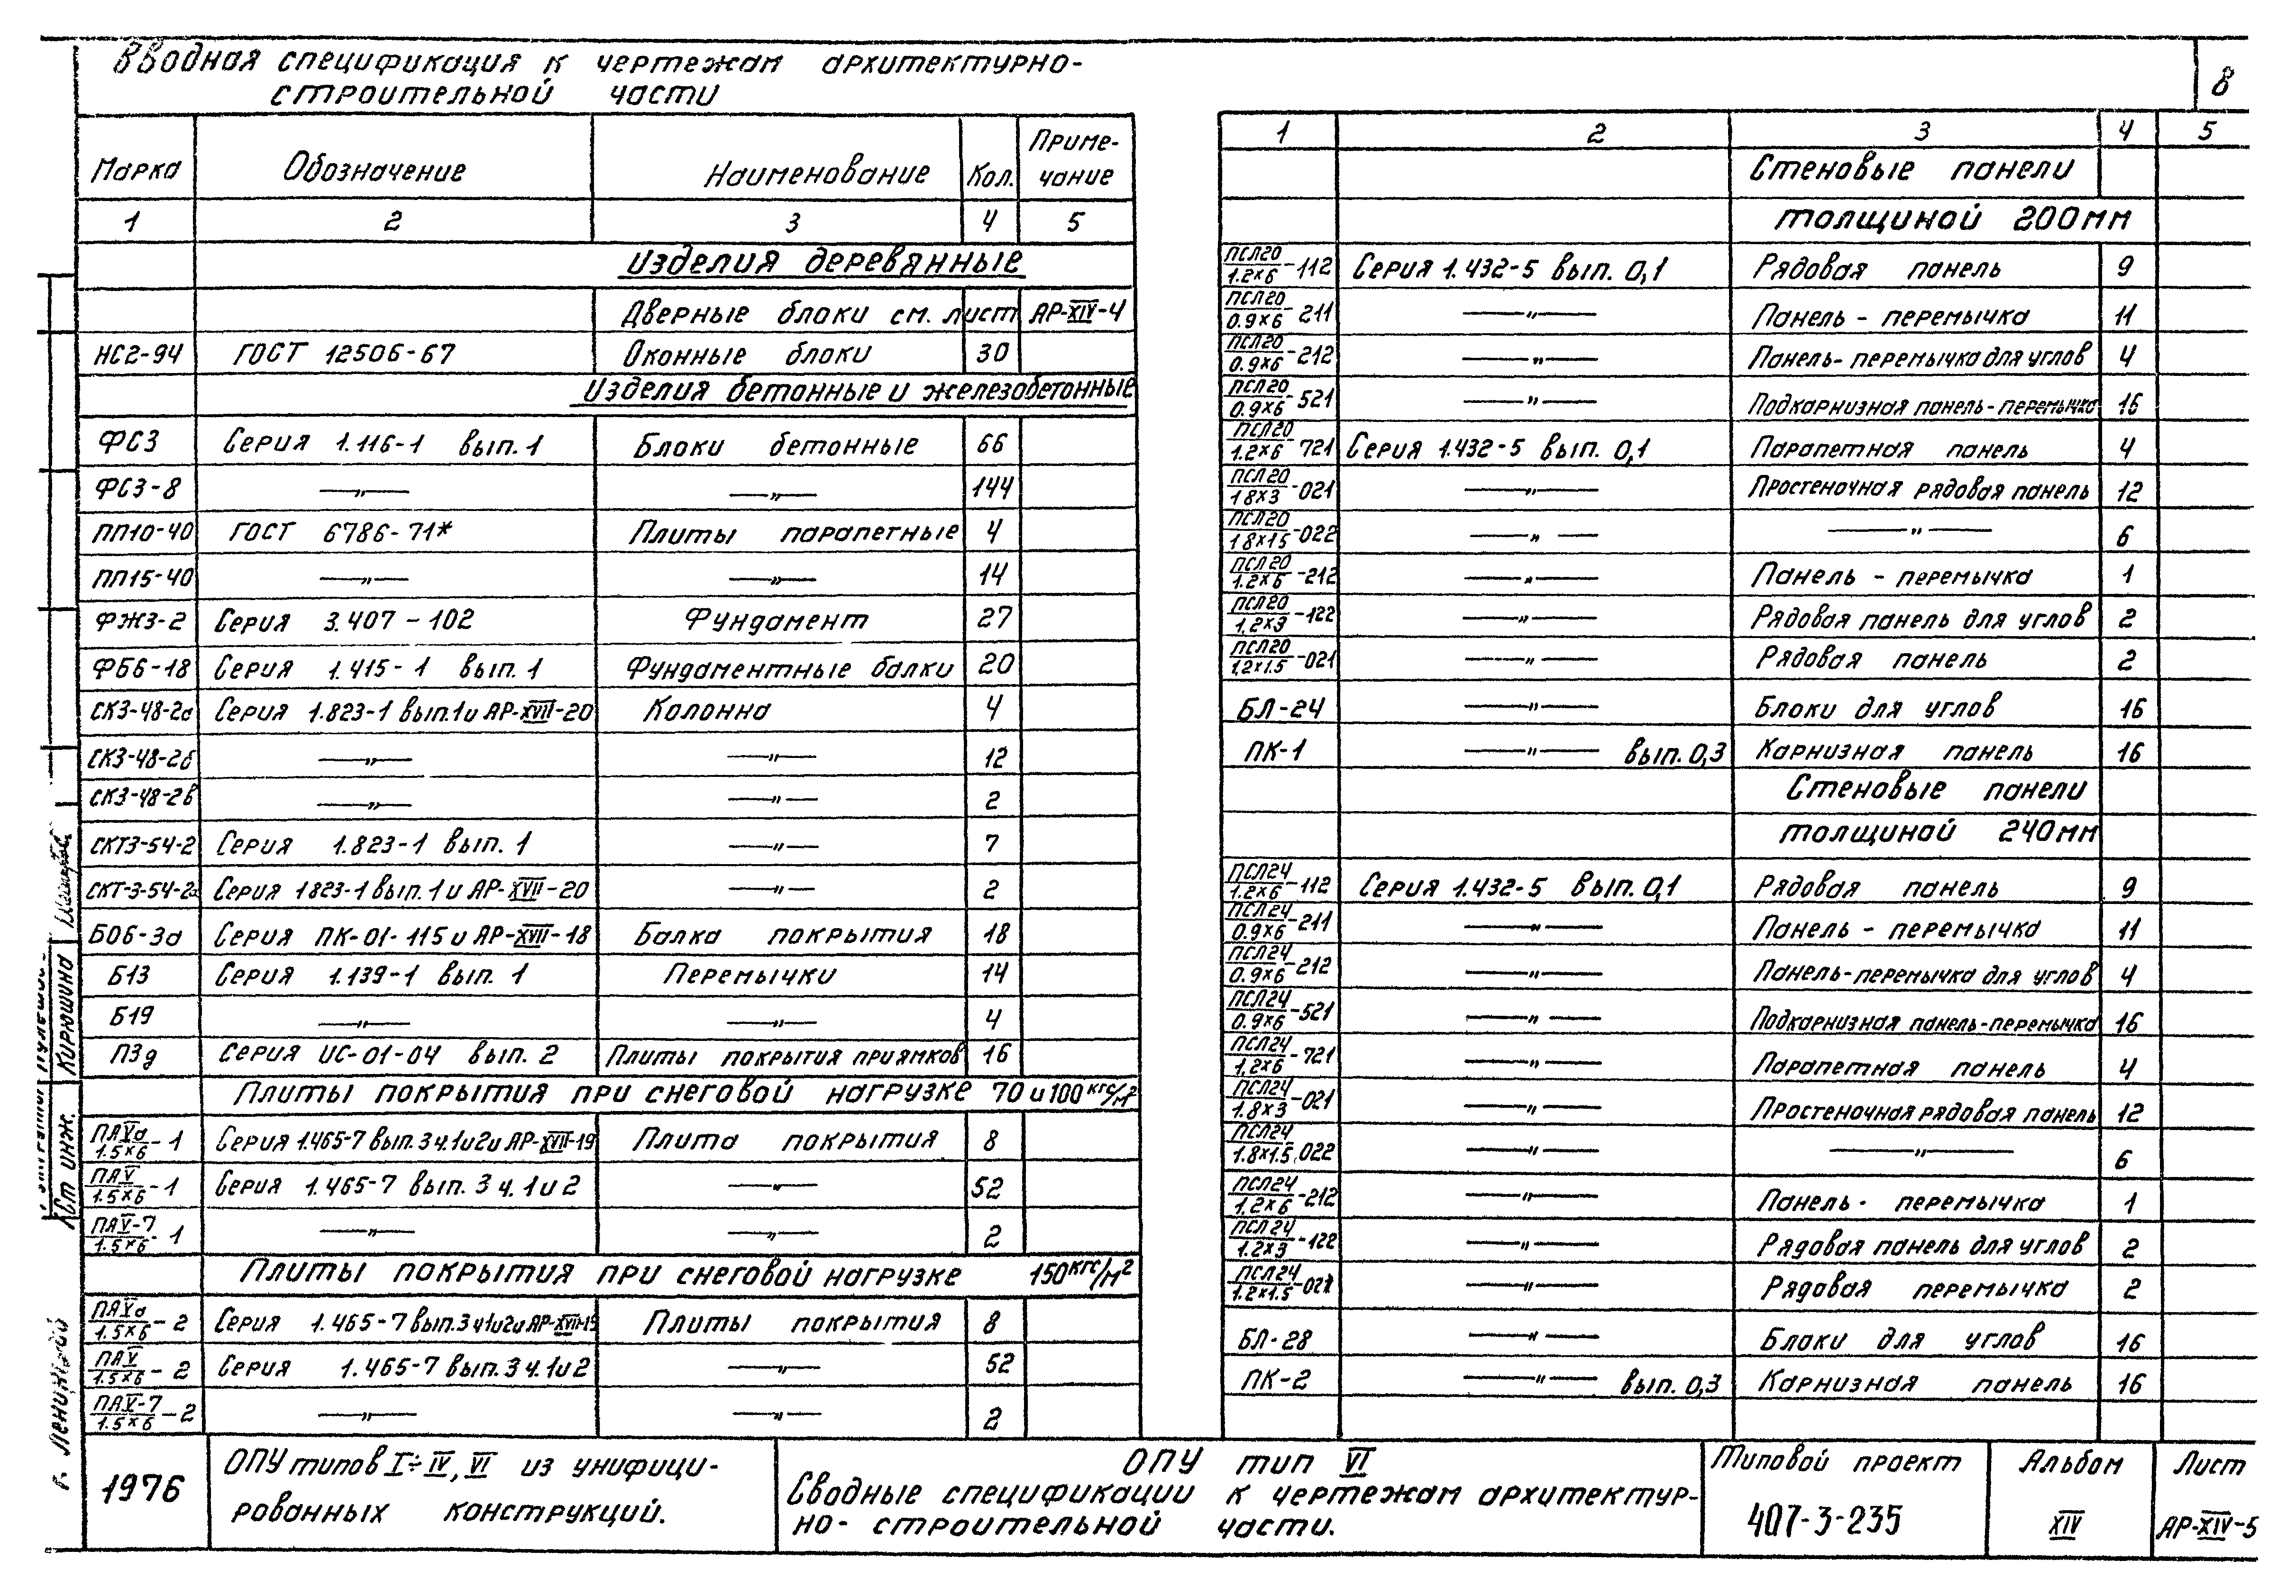 Вводная спецификация к чертежам архитектурно-
строительной части
8
Марка Обозначение Наименование Кол. Приме-
чание
1 2 3 4 5
Изделия деревянные
Дверные блоки см. лист АР-XIV-4
НС2-94 ГОСТ 12506-67 Оконные блоки 30
Изделия бетонные и железобетонные
ФС3 Серия 1.116-1 вып. 1 Блоки бетонные 66
ФС3-8 —"— —"— 144
ПП10-40 ГОСТ 6786-71* Плиты парапетные 4
ПП15-40 —"— —"— 14
ФЖ3-2 Серия 3.407-102 Фундамент 27
ФБ6-18 Серия 1.415-1 вып. 1 Фундаментные балки 20
СК3-48-2а Серия 1.823-1 вып.1 и АР-XVII-20 Колонна 4
СК3-48-2б —"— —"— 12
СК3-48-2в —"— —"— 2
СКТ3-54-2 Серия 1.823-1 вып. 1 —"— 7
СКТ-3-54-2а Серия 1823-1 вып. 1 и АР-XVII-20 —"— 2
БО6-3а Серия ПК-01-115 и АР-XVII-18 Балка покрытия 18
Б13 Серия 1.139-1 вып. 1 Перемычки 14
Б19 —"— —"— 4
П3д Серия ИС-01-04 вып. 2 Плиты покрытия приямков 16
Плиты покрытия при снеговой нагрузке 70 и 100 кгс/м²
ПАVа/1.5×6-1 Серия 1.465-7 вып. 3 ч.1и2 и АР-XVII-19 Плита покрытия 8
ПАV/1.5×6-1 Серия 1.465-7 вып. 3 ч. 1и2 —"— 52
ПАV-7/1.5×6-1 —"— —"— 2
Плиты покрытия при снеговой нагрузке 150 кгс/м²
ПАVа/1.5×6-2 Серия 1.465-7 вып.3 ч1и2и АР-XVII-19 Плиты покрытия 8
ПАV/1.5×6-2 Серия 1.465-7 вып. 3 ч. 1и2 —"— 52
ПАV-7/1.5×6-2 —"— —"— 2
1 2 3 4 5
Стеновые панели
толщиной 200мм
ПСЛ20/1.2×6-112 Серия 1.432-5 вып. 0,1 Рядовая панель 9
ПСЛ20/0.9×6-211 —"— Панель-перемычка 11
ПСЛ20/0.9×6-212 —"— Панель-перемычка для углов 4
ПСЛ20/0.9×6-521 —"— Подкарнизная панель-перемычка 16
ПСЛ20/1.2×6-721 Серия 1.432-5 вып. 0,1 Парапетная панель 4
ПСЛ20/1.8×3-021 —"— Простеночная рядовая панель 12
ПСЛ20/1.8×1.5-022 —"— —"— 6
ПСЛ20/1.2×6-212 —"— Панель-перемычка 1
ПСЛ20/1.2×3-122 —"— Рядовая панель для углов 2
ПСЛ20/1,2×1.5-021 —"— Рядовая панель 2
БЛ-24 —"— Блоки для углов 16
ПК-1 —"— вып. 0,3 Карнизная панель 16
Стеновые панели
толщиной 240мм
ПСЛ24/1.2×6-112 Серия 1.432-5 вып. 0,1 Рядовая панель 9
ПСЛ24/0.9×6-211 —"— Панель-перемычка 11
ПСЛ24/0.9×6-212 —"— Панель-перемычка для углов 4
ПСЛ24/0.9×6-521 —"— Подкарнизная панель-перемычка 16
ПСЛ24/1,2×6-721 —"— Парапетная панель 4
ПСЛ24/1.8×3-021 —"— Простеночная рядовая панель 12
ПСЛ24/1.8×1.5-022 —"— —"— 6
ПСЛ24/1.2×6-212 —"— Панель-перемычка 1
ПСЛ24/1.2×3-122 —"— Рядовая панель для углов 2
ПСЛ24/1.2×1.5-021 —"— Рядовая перемычка 2
БЛ-28 —"— Блоки для углов 16
ПК-2 —"— вып. 0,3 Карнизная панель 16
Кирюшина
инж.
г. Ленинград
1976
ОПУ типов I÷IV, VI из унифици-
рованных конструкций.
ОПУ тип VI
Сводные спецификации к чертежам архитектур-
но-строительной части.
Типовой проект
407-3-235
Альбом
XIV
Лист
АР-XIV-5